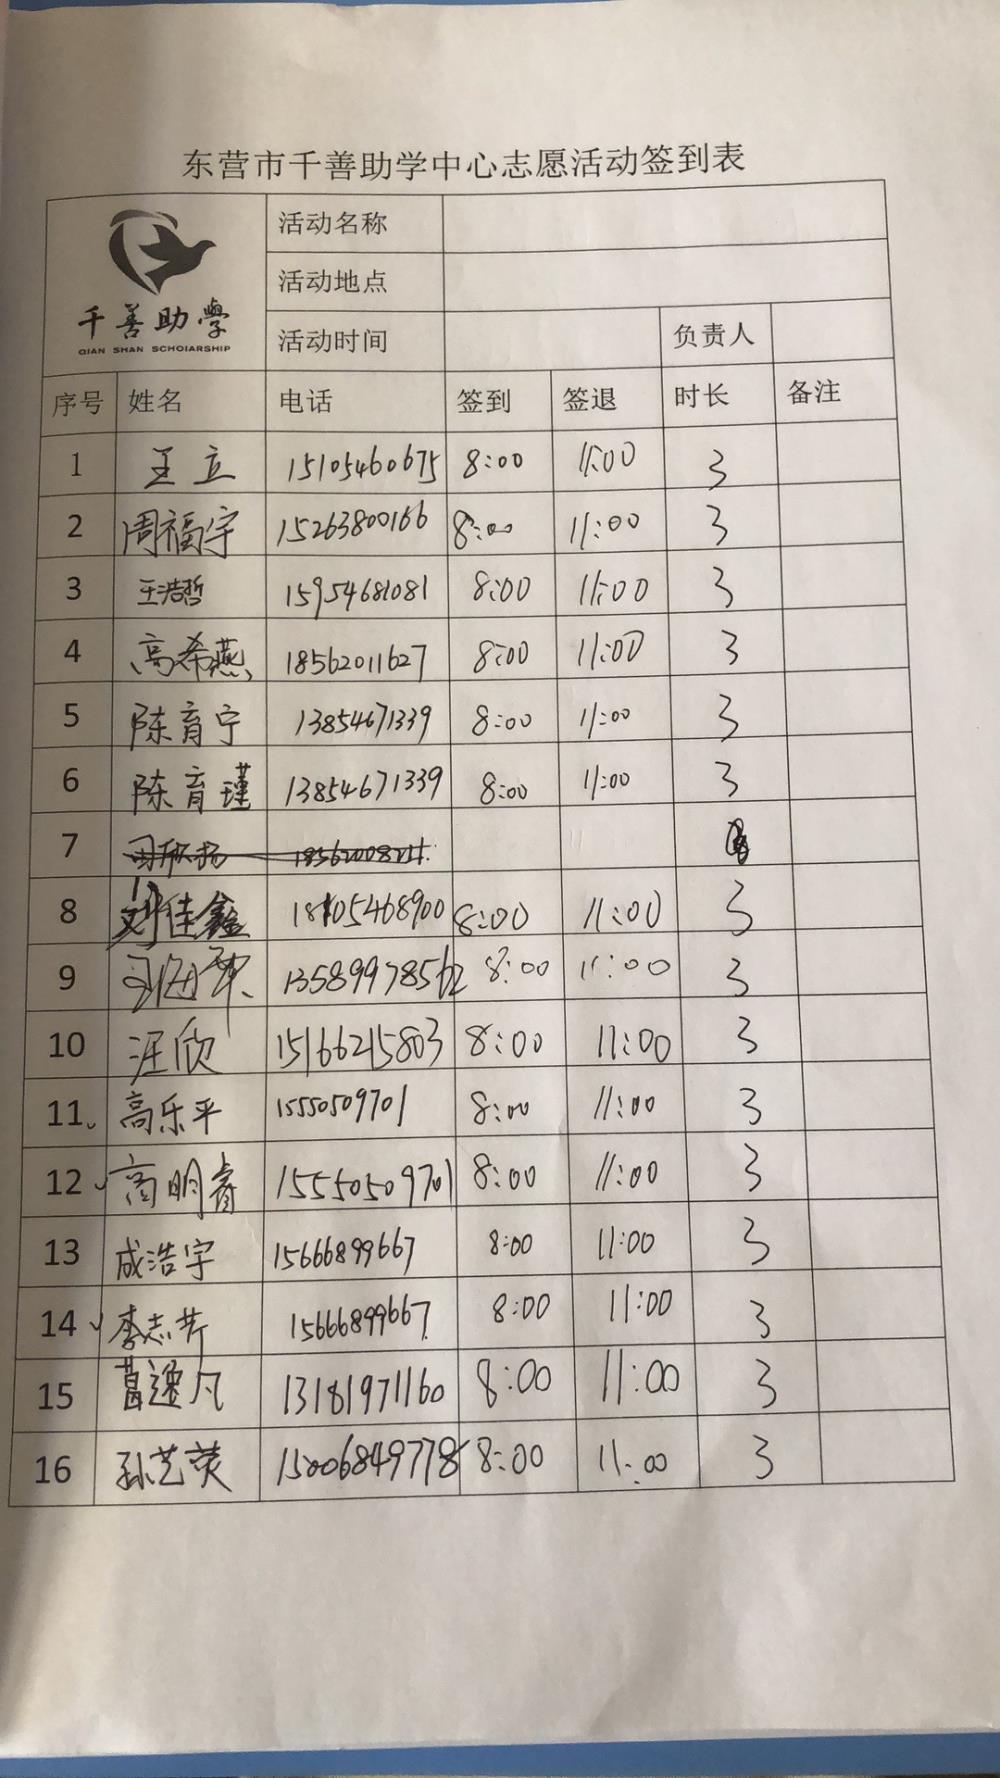 东营市千善助学中心志愿活动签到表
千善助學
QIAN SHAN SCHOIARSHIP
活动名称
活动地点
活动时间 负责人
序号 姓名 电话 签到 签退 时长 备注
1 王立 15105460675 8:00 11:00 3
2 周福宇 15263800166 8:00 11:00 3
3 王浩哲 15954681081 8:00 11:00 3
4 高希燕 18562011627 8:00 11:00 3
5 陈育宁 13854671339 8:00 11:00 3
6 陈育瑾 13854671339 8:00 11:00 3
7
8 刘佳鑫 18105468900 8:00 11:00 3
9 13589978562 8:00 11:00 3
10 汪欣 15166215803 8:00 11:00 3
11 高乐平 15550509701 8:00 11:00 3
12 高明睿 15550509701 8:00 11:00 3
13 成浩宇 15666899667 8:00 11:00 3
14 李志芹 15666899667 8:00 11:00 3
15 葛逸凡 13181971160 8:00 11:00 3
16 孙艺荧 15006849778 8:00 11:00 3